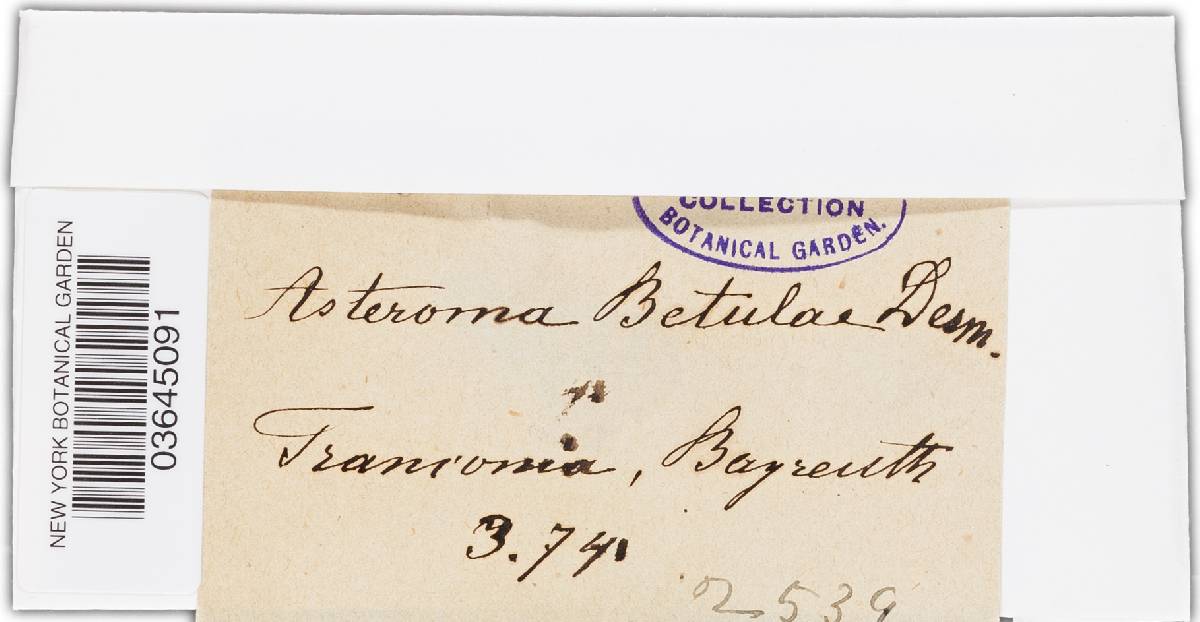 COLLECTION
BOTANICAL GARDEN.
Asteroma Betulae Desm.
Franconia, Bayreuth
3.74
2539
NEW YORK BOTANICAL GARDEN
03645091